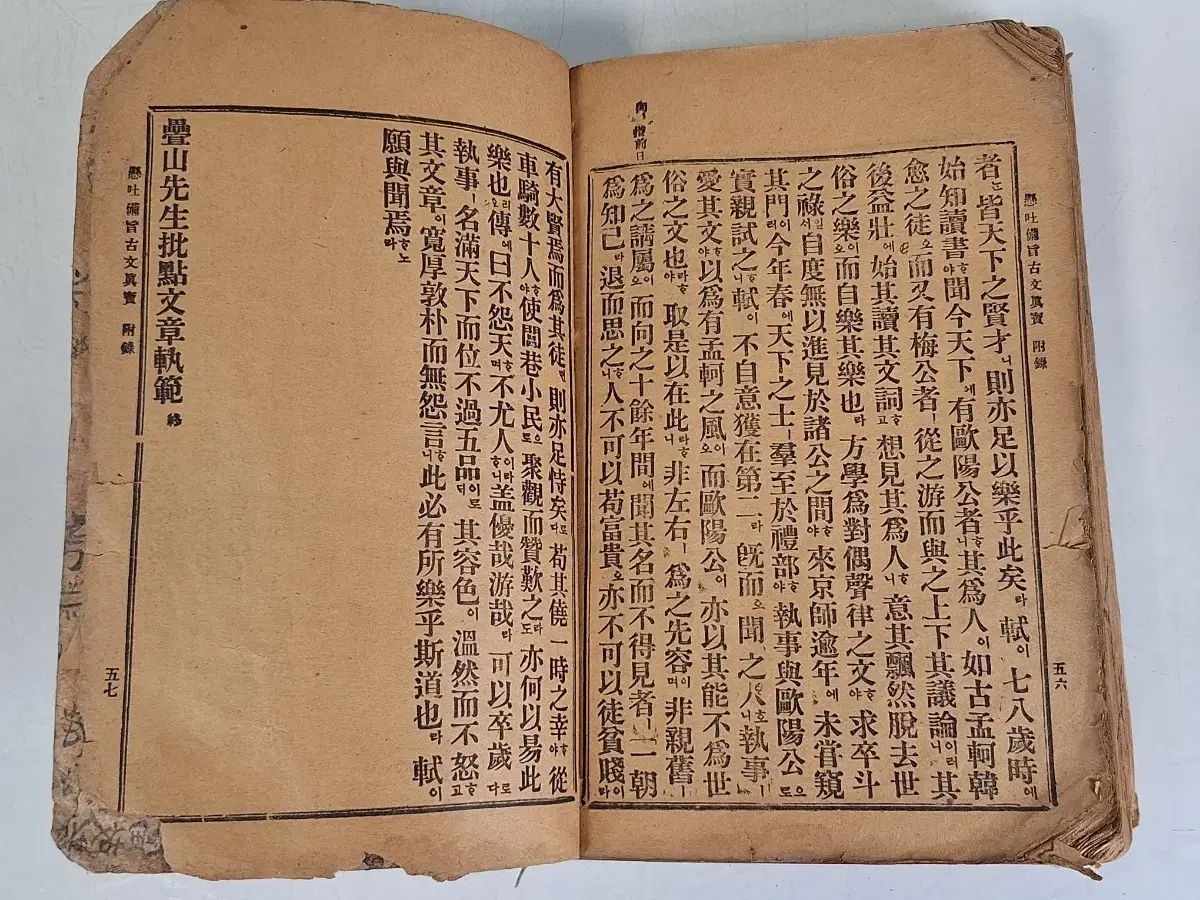 懸吐備旨古文眞寶 附錄
五六
向 指前日
者는皆天下之賢才니則亦足以樂乎此矣라軾이七八歲時에
始知讀書ᄒᆞ야聞今天下에有歐陽公者ᄒᆞ니其爲人이如古孟軻韓
愈之徒오而又有梅公者ㅣ從之游而與之上下其議論이러니其
後益壯에始其讀其文詞ᄒᆞ고想見其爲人ᄒᆞ니意其飄然脫去世
俗之樂이오而自樂其樂也라方學爲對偶聲律之文ᄒᆞ야求卒斗
之祿일서自度無以進見於諸公之間ᄒᆞ야來京師逾年에未甞窺
其門이러今年春에天下之士ㅣ羣至於禮部ᄒᆞ야執事與歐陽公으로
實親試之ᄒᆞ니軾이不自意獲在第二라旣而으聞之人ᄒᆞ니執事ㅣ
愛其文ᄒᆞ야以爲有孟軻之風이오而歐陽公이亦以其能不爲世
俗之文也라ᄒᆞ야取是以在此라ᄒᆞ니非左右ㅣ爲之先容이며非親舊ㅣ
爲之請屬이오而向之十餘年間에聞其名而不得見者ㅣ一朝
爲知己라退而思之ᄒᆞ니人不可以苟富貴오亦不可以徒貧賤이라
有大賢焉而爲其徒면則亦足恃矣로다苟其僥一時之幸ᄒᆞ야從
車騎數十人ᄒᆞ야使閭巷小民으로聚觀而贊歎之라도亦何以易此
樂也리오傳에曰不怨天ᄒᆞ며不尤人이라ᄒᆞ니盖優哉游哉라可以卒歲로다
執事ㅣ名滿天下而位不過五品이로ᄃᆡ其容色이溫然而不怒ᄒᆞ고
其文章이寬厚敦朴而無怨言ᄒᆞ니此必有所樂乎斯道也라軾이
願與聞焉ᄒᆞ노라
疊山先生批點文章軌範 終
懸吐備旨古文眞寶 附錄
五七